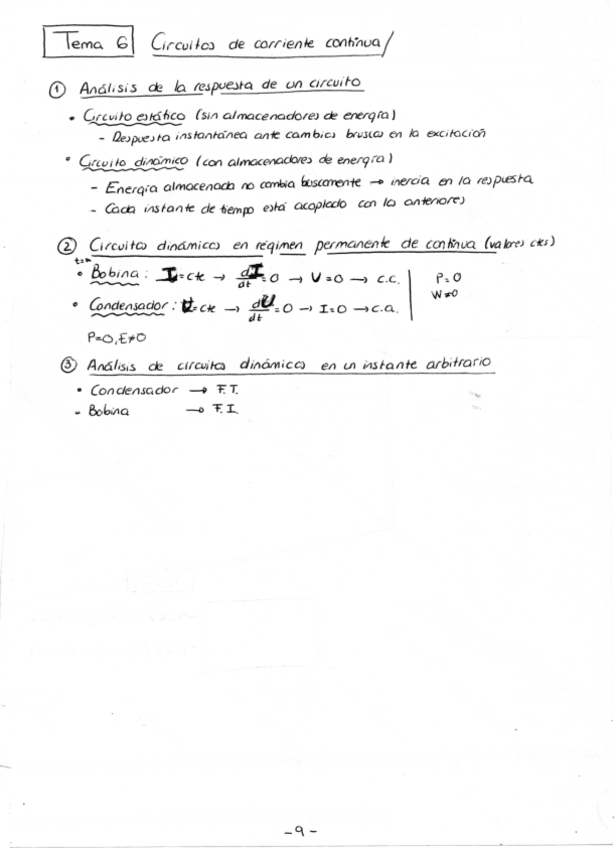 Tema 6 Circuitos de corriente continua/
① Análisis de la respuesta de un circuito
• Circuito estático (sin almacenadores de energía)
- Respuesta instantánea ante cambios bruscos en la excitación
• Circuito dinámico (con almacenadores de energía)
- Energía almacenada no cambia buscamente → inercia en la respuesta
- Cada instante de tiempo está acoplado con la anteriores
② Circuitos dinámicos en régimen permanente de continua (valores ctes)
t=∞
• Bobina: I=cte → dI/dt=0 → U=0 → c.c. | P=0
• Condensador: U=cte → dU/dt=0 → I=0 → c.a. | W≠0
P=0, E≠0
③ Análisis de circuitos dinámicos en un instante arbitrario
• Condensador → F.T.
- Bobina → F.I.
- 9 -